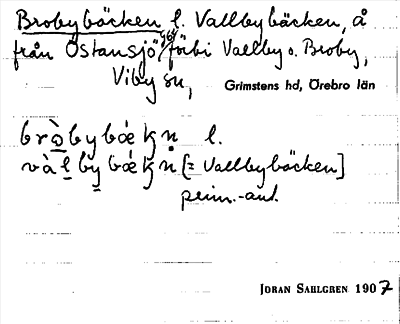 Brobybäcken l. Vallbybäcken, å
från Östansjö förbi Vallby o. Broby,
Viby sn, Grimstens hd, Örebro län
bròbybǽkn l.
vàlbybǽkn [= Vallbybäcken]
prim.-ant.
JÖRAN SAHLGREN 1907